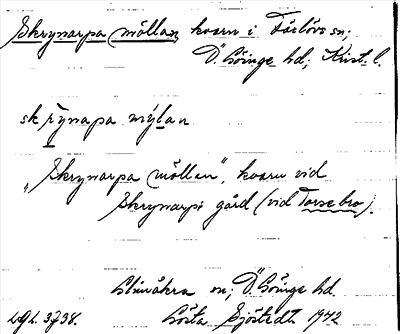 Skrynarpa möllan, kvarn i Färlövs sn;
Ö. Göinge hd; Krist. l.
skrynapa mýlan
„Skrynarpa möllan", kvarn vid
Skrynarps gård (vid Torsebro).
Glimåkra sn; Ö. Göinge hd.
Gösta Sjöstedt 1942